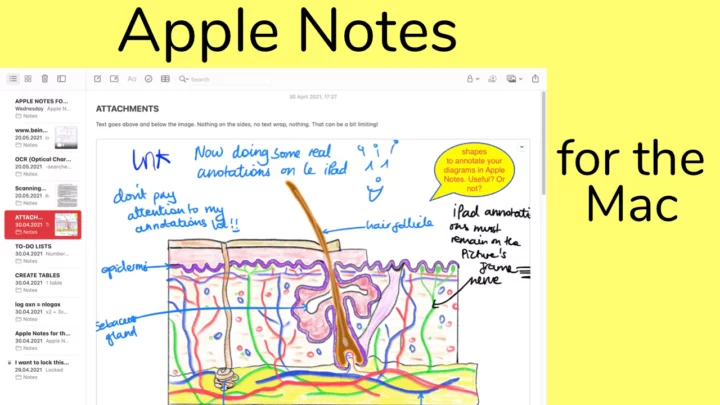 Apple Notes
for the
Mac
Aa
Search
30 April 2021, 17:27
ATTACHMENTS
Text goes above and below the image. Nothing on the sides, no text wrap, nothing. That can be a bit limiting!
APPLE NOTES FO...
Wednesday Apple N...
Notes
www.bein...
20.05.2021
Notes
OCR (Optical Char...
20.05.2021 -searche...
Notes
Scanning...
20.05.2021
Notes
ATTACH...
30.04.2021
Notes
TO-DO LISTS
30.04.2021 Number...
Notes
CREATE TABLES
30.04.2021 1 table
Notes
log axn = nlogax
30.04.2021
Notes
Apple Notes for th...
30.04.2021 Apple N...
Notes
I want to lock this...
29.04.2021 Locked
Notes
Now doing some real
anotations on le iPad
don't pay
attention to my
annotations lol!!
shapes
to annotate your
diagrams in Apple
Notes. Useful? Or
not?
hair follicle
iPad annotati
ons must
remain on the
picture's
epidermis
sebaceous
gland